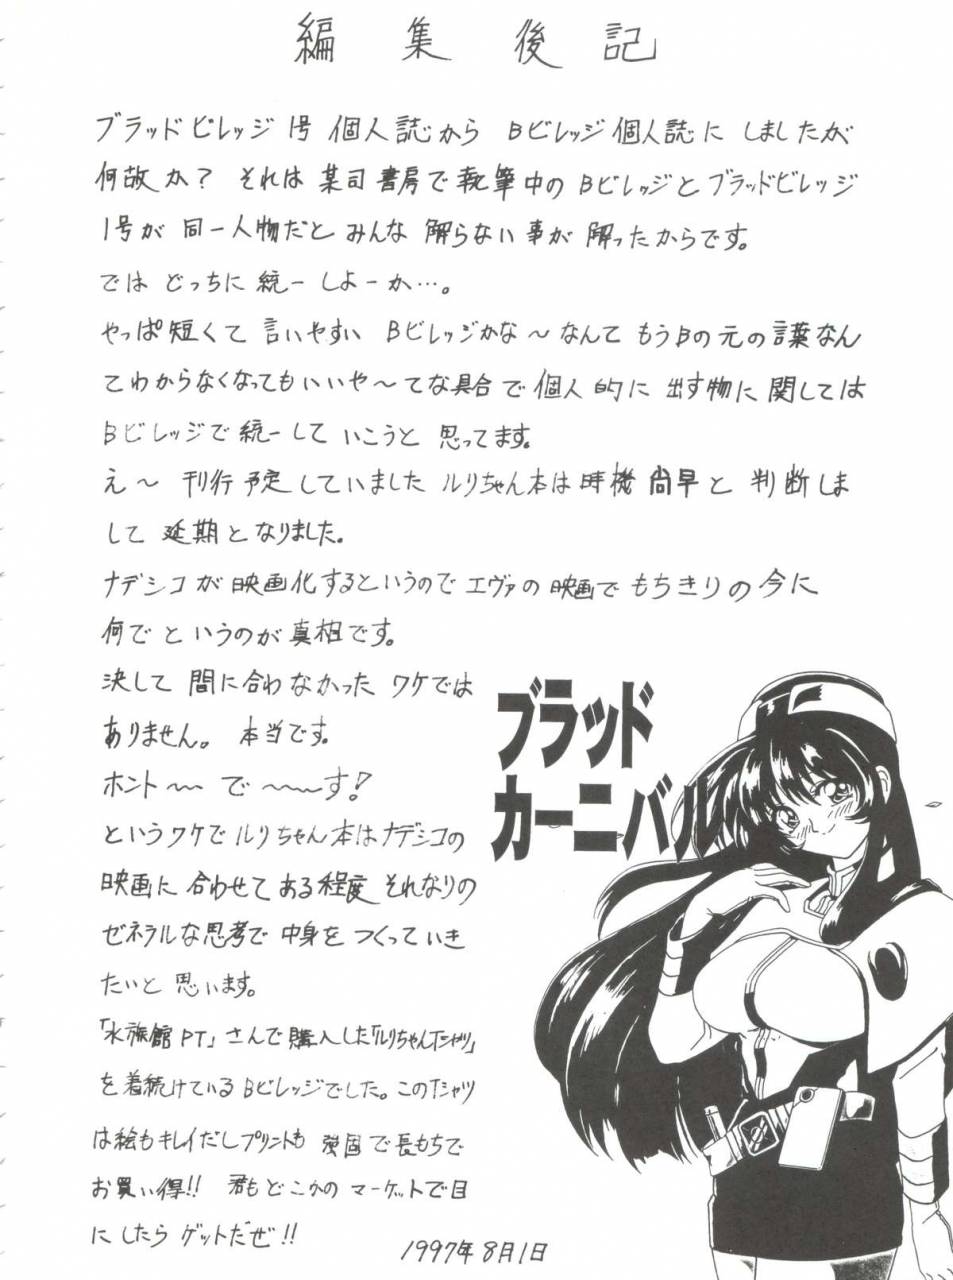 編集後記
ブラッドビレッジ1号個人誌から Bビレッジ個人誌に しましたが
何故か？ それは某司書房で執筆中のBビレッジとブラッドビレッジ
1号が同一人物だと みんな 解らない事が 解ったからです。
では どっちに 統一しよーか…。
やっぱ短くて 言いやすい Bビレッジかな〜なんて もうBの元の言葉なん
てわからなくなってもいいや〜てな具合で個人的に 出す物に関しては
Bビレッジで統一して いこうと 思ってます。
え〜 刊行予定していました ルリちゃん本は時機尚早と 判断しま
して 延期となりました。
ナデシコが映画化するというのでエヴァの映画でもちきりの今に
何で というのが真相です。
決して 間に合わなかった ワケでは
ありません。 本当です。
ホント〜 で〜す！
というワケで ルリちゃん本はナデシコの
映画に 合わせて ある程度 それなりの
ゼネラルな思考で 中身を つくっていき
たいと 思います。
「水族館PT」さんで購入した「ルリちゃんTシャツ」
を着続けているBビレッジでした。このTシャツ
は絵もキレイだしプリントも 強固で長もちで
お買い得!! 君もどこかの マーケットで目
にしたら ゲットだぜ!!
1997年8月1日
ブラッド
カーニバル